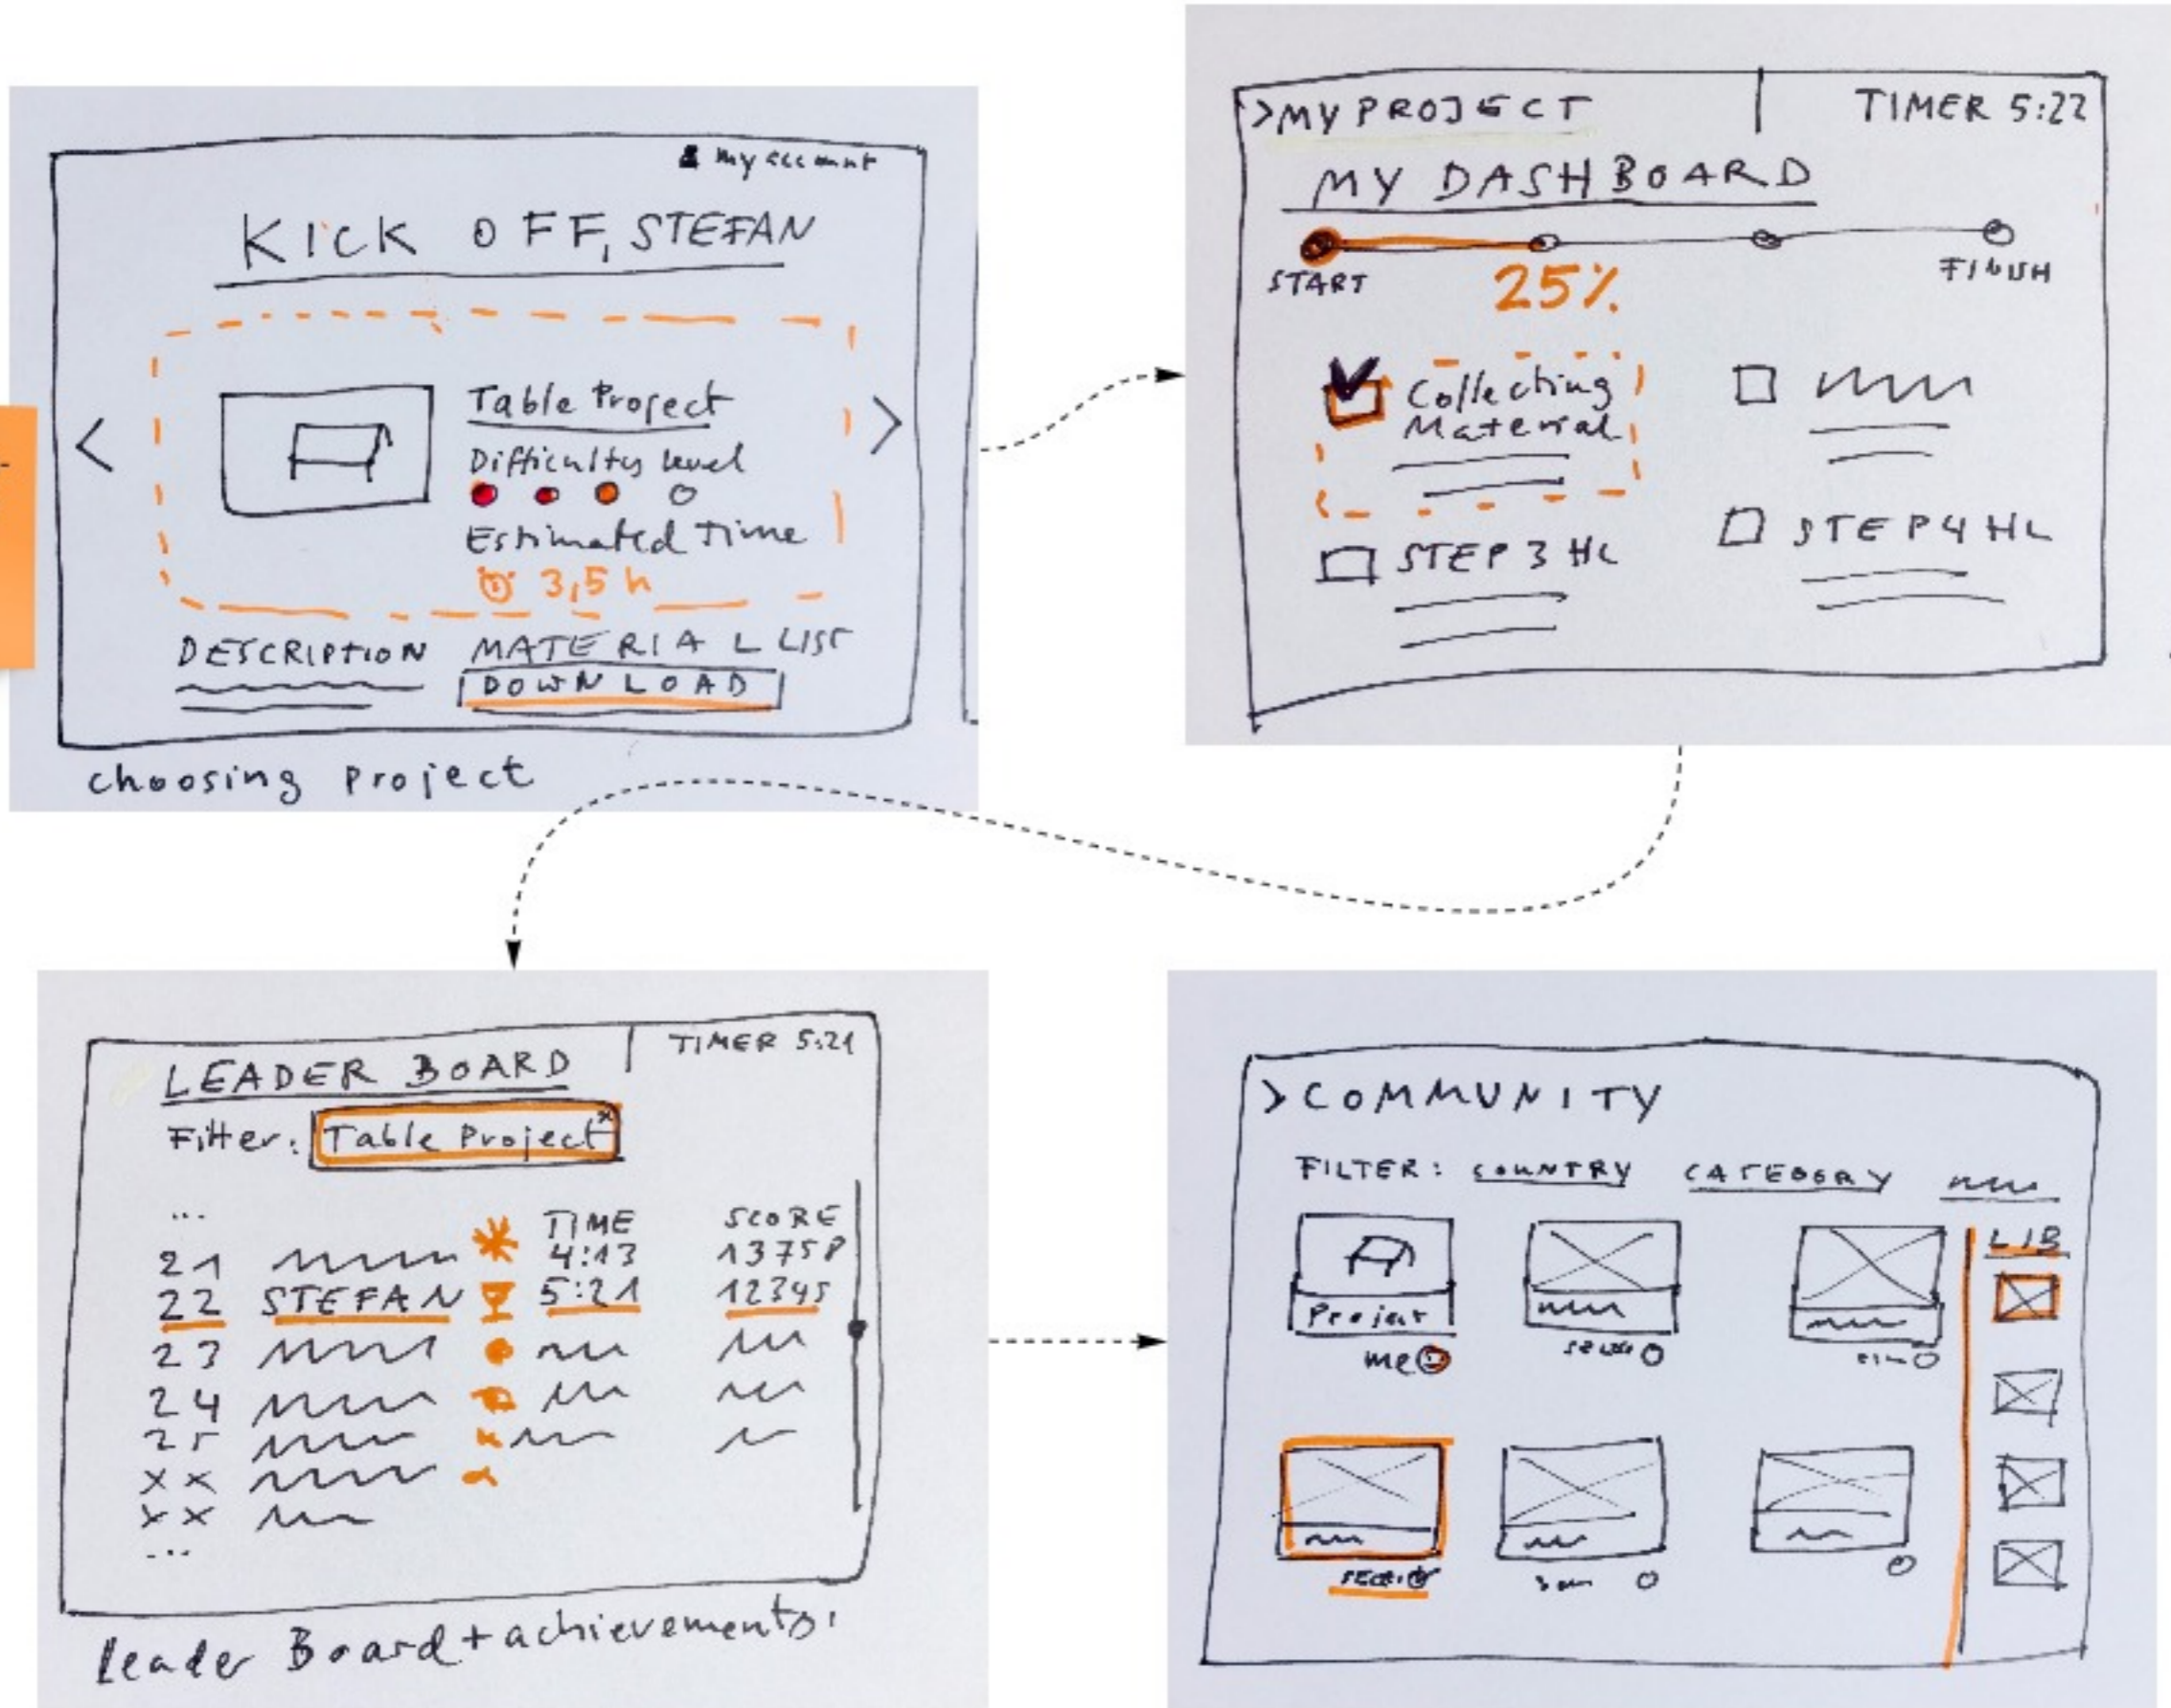 my account
KICK OFF, STEFAN
<
>
Table Project
Difficulty level
Estimated Time
3,5 h
DESCRIPTION
MATERIAL LIST
DOWNLOAD
choosing project
>MY PROJECT
TIMER 5:22
MY DASHBOARD
START
25%
FINISH
Collecting
Material
STEP 3 HL
STEP 4 HL
LEADER BOARD
TIMER 5:21
Filter: Table Project x
...
TIME SCORE
21 4:13 1375P
22 STEFAN 5:21 12345
23
24
25
xx
xx
...
Leader Board + achievements.
> COMMUNITY
FILTER: COUNTRY CATEGORY
LIB
Project
me